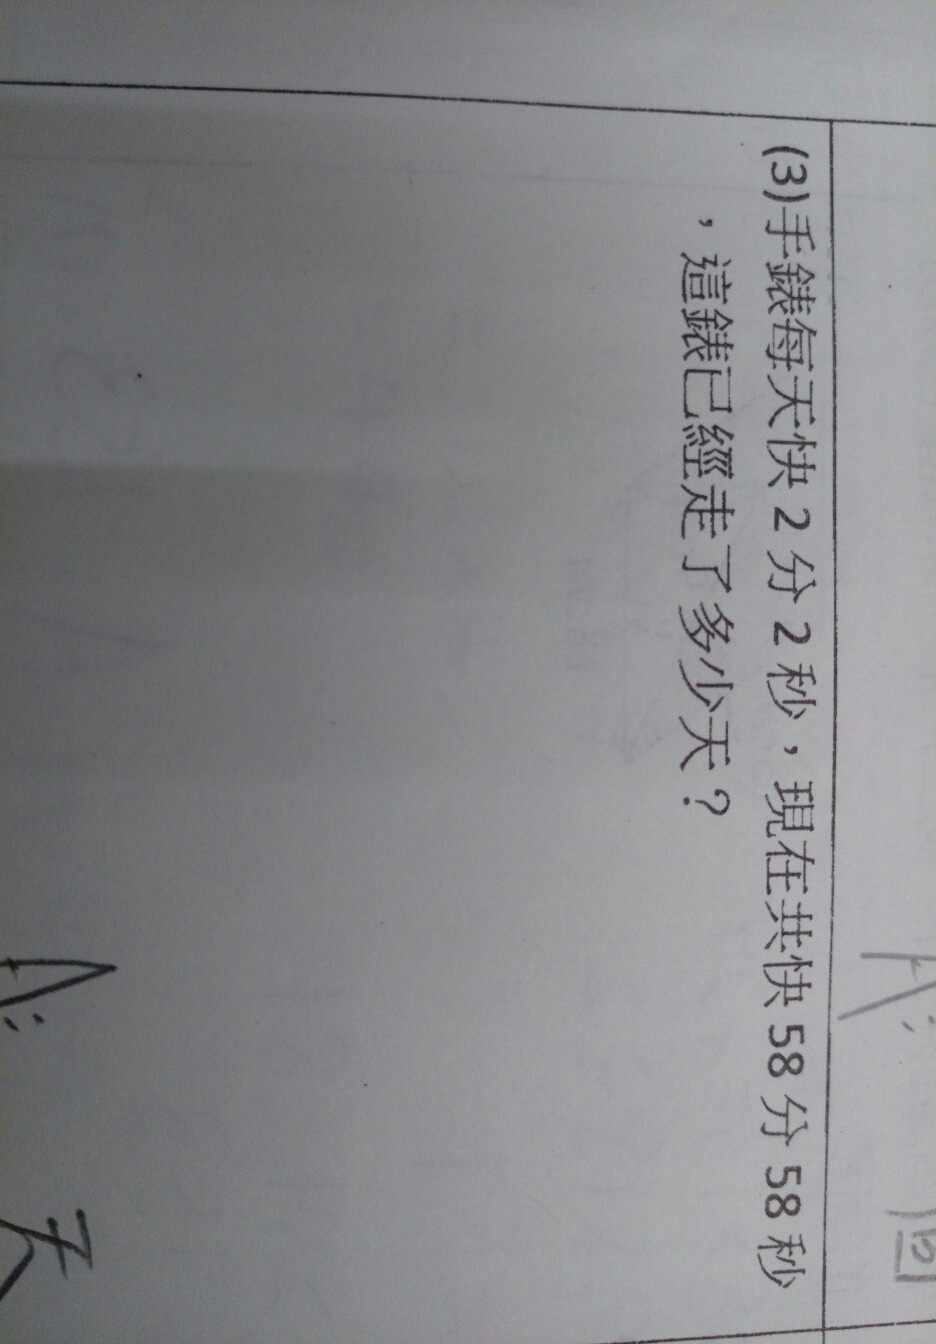 (3)手錶每天快 2 分 2 秒,現在共快 58 分 58 秒
,這錶已經走了多少天?
A:
回
A: 天